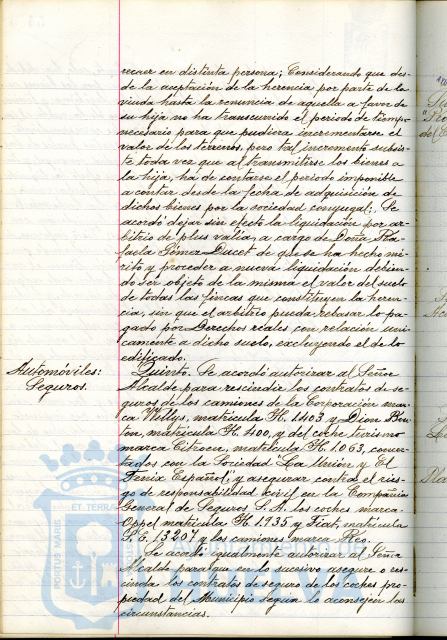 recaer en distinta persona; Considerando que des-
de la aceptación de la herencia por parte de la
viuda hasta la renuncia de aquella a favor de
su hija no ha transcurrido el periodo de tiempo
necesario para que pudiera incrementarse el
valor de los terrenos, pero tal incremento subsis-
te toda vez que al transmitirse los bienes a
la hija, ha de contarse el periodo imponible
a contar desde la fecha de adquisición de
dichos bienes por la sociedad conyugal: Se
acordó dejar sin efecto la liquidación por ar-
bitrio de plus valía, a cargo de Doña Ra-
faela Gómez Ducet de que se ha hecho mé-
rito y proceder a nueva liquidación debien-
do ser objeto de la misma el valor del suelo
de todas las fincas que constituyen la heren-
cia, sin que el arbitrio pueda rebasar lo pa-
gado por Derechos reales con relación uni-
camente a dicho suelo, excluyendo el de lo
edificado.
Automóviles:
Seguros.
Quinto. Se acordó autorizar al Señor
Alcalde para rescindir los contratos de se-
guros de los camiones de la Corporación mar-
ca Willys, matrícula H. 1403 y Dion Bou-
ton, matrícula H. 400, y del coche turismo
marca Citroen, matrícula H. 1.063, concer-
tados con la Sociedad "La Unión y El
Fenix Español" y asegurar contra el ries-
go de responsabilidad civil en la Compañía
General de Seguros S. A. los coches marca
Oppel matrícula H. 1.935 y Fiat, matrícula
13207 y los camiones marca Reo.
Se acordó igualmente autorizar al Señor
Alcalde para que en lo sucesivo asegure o res-
cinda los contratos de seguro de los coches pro-
piedad del Municipio según lo aconsejen las
circunstancias.
PORTUS MARIS
ET TERRAE